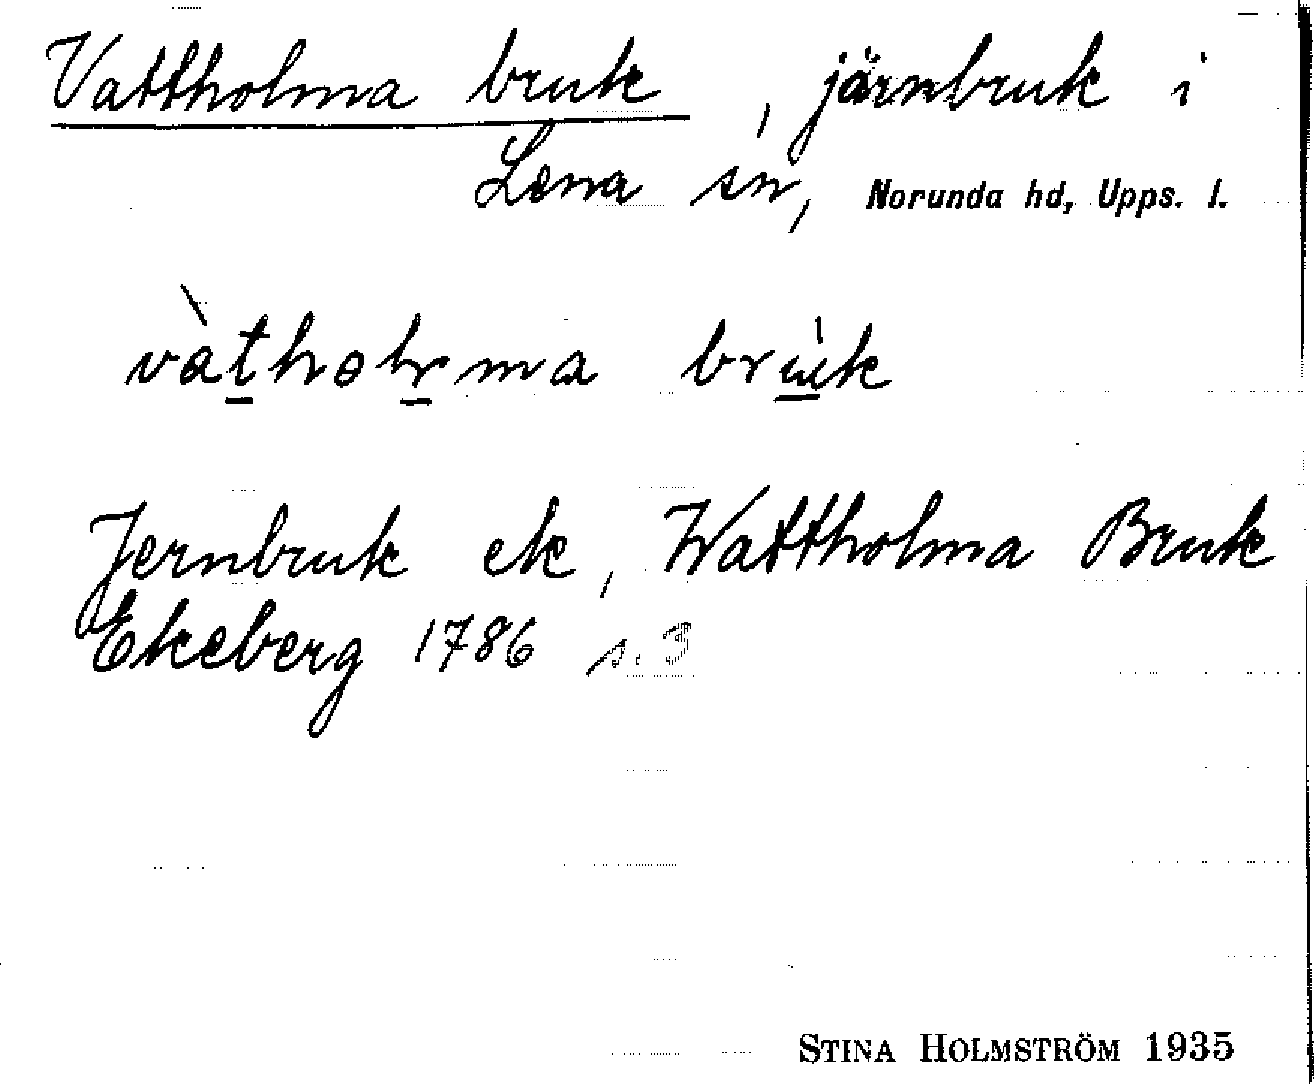 Vattholma bruk, järnbruk i
Lena sn, Norunda hd, Upps. l.
vàtholma brùk
Jernbruk ek, Wattholma Bruk
Ekeberg 1786 s. 3
STINA HOLMSTRÖM 1935